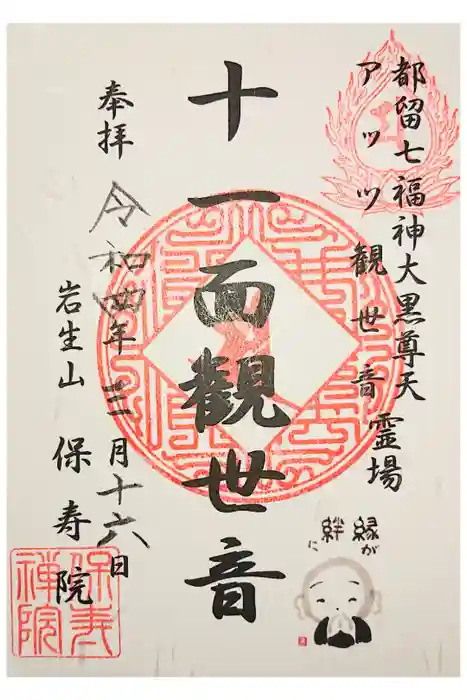 都留七福神大黒尊天
アッツ観世音
霊場
十一面觀世音
奉拝
令和四年三月十六日
岩生山
保寿院
縁が
絆に
保寿
禅院